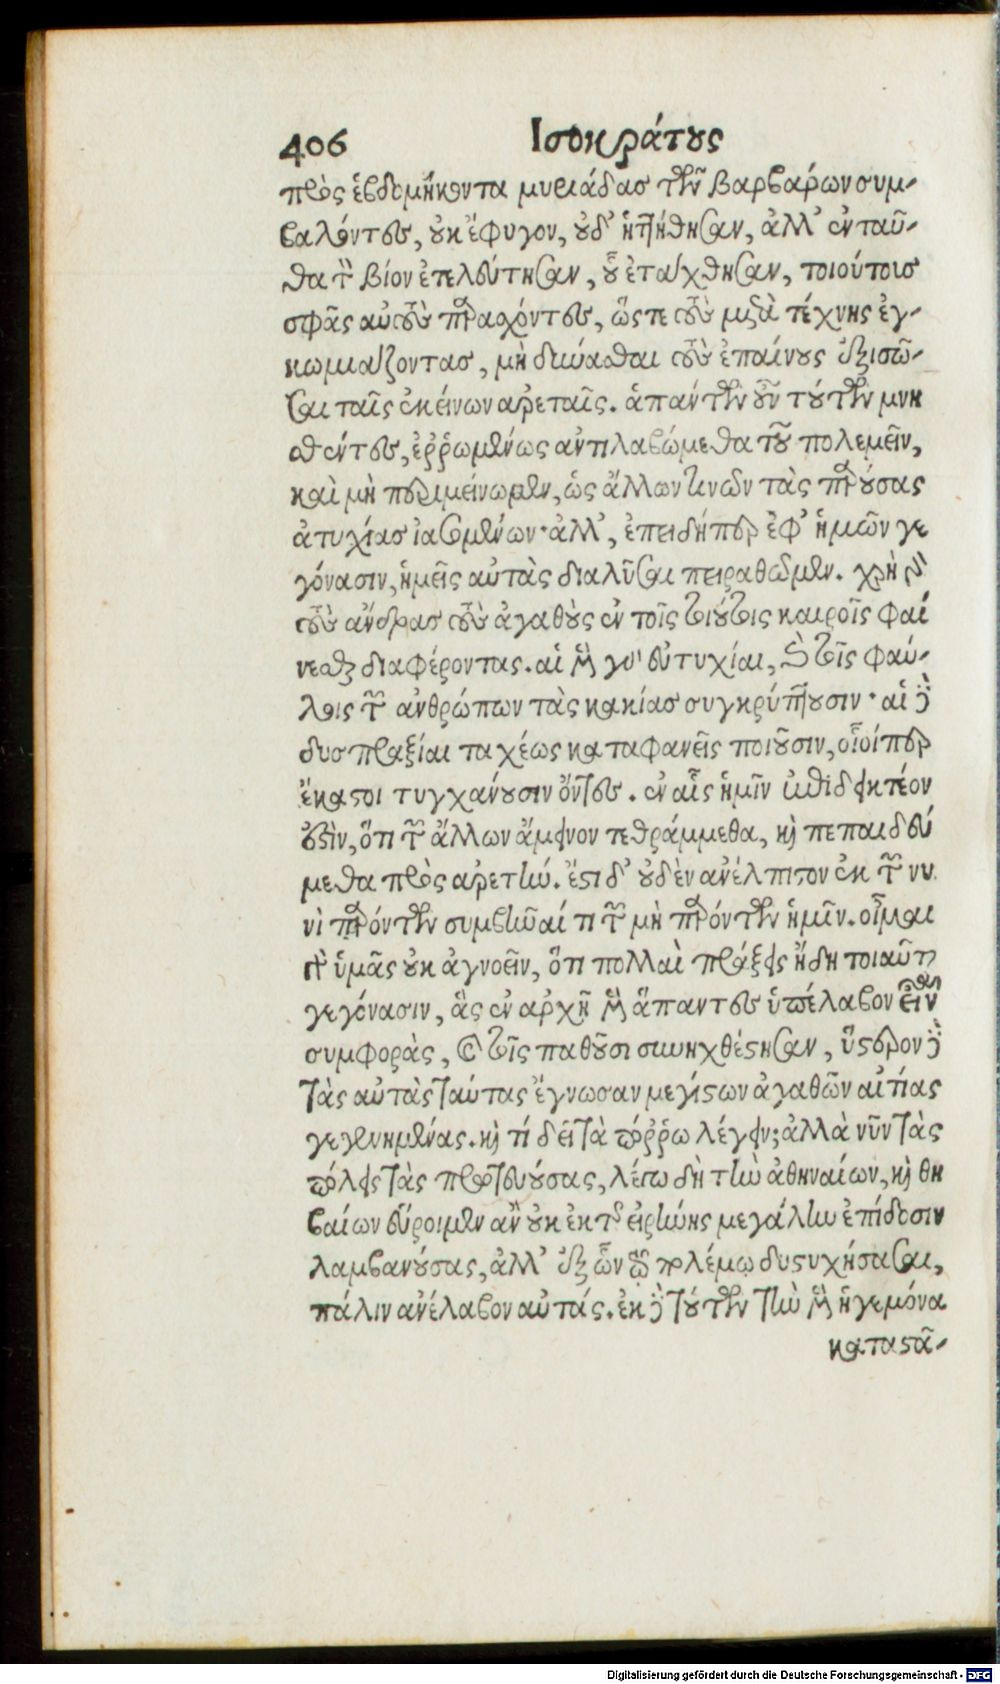 406 Ισοκράτους
πρὸς ἑβδομήκοντα μυριάδας τῶν βαρβάρων συμ-
βαλόντες, οὐκ ἔφυγον, οὐδ' ἡττήθησαν, ἀλλ' ἐνταῦ-
θα τὸν βίον ἐπελεύτησαν, οὗ ἐτάχθησαν, τοιούτοις
σφᾶς αὐτοὺς παραχόντες, ὥςτε τοὺς μετὰ τέχνης ἐγ-
κωμιάζοντας, μὴ δύναθαι τοὺς ἐπαίνους ἐξισῶ-
σαι ταῖς ἐκείνων ἀρεταῖς. ἁπάντων οὖν τούτων μνη
σθέντες, ἐῤῥωμένως ἀντιλαβώμεθα τοῦ πολεμεῖν,
καὶ μὴ περιμείνωμεν, ὡς ἄλλων τινῶν τὰς παρούσας
ἀτυχίας ἰασομένων· ἀλλ', ἐπειδήπερ ἐφ' ἡμῶν γε
γόνασιν, ἡμεῖς αὐτὰς διαλῦσαι πειραθῶμεν. χρὴ δὲ
τοὺς ἄνδρας τοὺς ἀγαθοὺς ἐν τοῖς τοιούτοις καιροῖς φαί
νεσθαι διαφέροντας. αἱ μὲν γὰρ εὐτυχίαι, καὶ τοῖς φαύ-
λοις τῶν ἀνθρώπων τὰς κακίας συγκρύπτουσιν· αἱ δὲ
δυσπραξίαι ταχέως καταφανεῖς ποιοῦσιν, οἷοίπερ
ἕκαστοι τυγχάνουσιν ὄντες. ἐν αἷς ἡμῖν ἐπιδεικτέον
ἐστὶν, ὅτι τῶν ἄλλων ἄμεινον τεθράμμεθα, καὶ πεπαιδεύ
μεθα πρὸς ἀρετήν. ἔστι δ' οὐδὲν ἀνέλπιστον ἐκ τῶν νυ
νὶ παρόντων συμβῆναί τι τῶν μὴ παρόντων ἡμῖν. οἶμαι
γὰρ ὑμᾶς οὐκ ἀγνοεῖν, ὅτι πολλαὶ πράξεις ἤδη τοιαῦται
γεγόνασιν, ἃς ἐν ἀρχῇ μὲν ἅπαντες ὑπέλαβον εἶναι
συμφορὰς, καὶ τοῖς παθοῦσι συνηχθέσθησαν, ὕστερον δὲ
τὰς αὐτὰς ταύτας ἔγνωσαν μεγίστων ἀγαθῶν αἰτίας
γεγενημένας. καὶ τί δεῖ τὰ πόῤῥω λέγειν; ἀλλὰ νῦν τὰς
πόλεις τὰς πρωτευούσας, λέγω δὴ τὴν ἀθηναίων, καὶ θη
βαίων εὕροιμεν ἂν οὐκ ἐκ τῆς εἰρήνης μεγάλην ἐπίδοσιν
λαμβανούσας, ἀλλ' ἐξ ὧν ἐν τῷ πολέμῳ δυστυχήσασαι,
πάλιν ἀνέλαβον αὐτάς. ἐκ δὲ τούτων τὴν μὲν ἡγεμόνα
καταστᾶ-
Digitalisierung gefördert durch die Deutsche Forschungsgemeinschaft - DFG